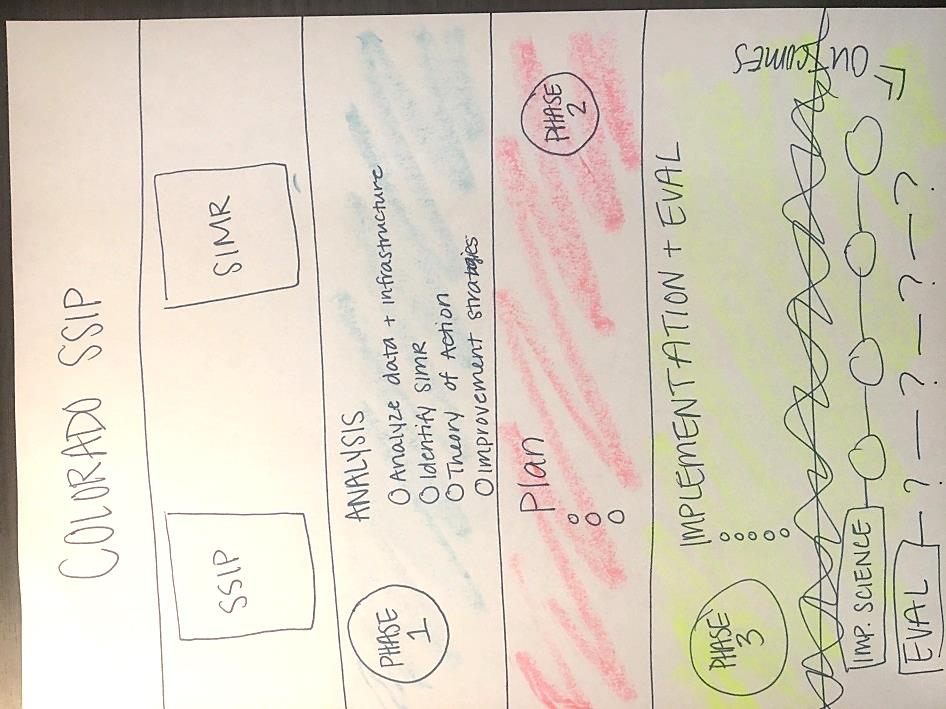 COLORADO SSIP
SSIP
SIMR
PHASE 1
ANALYSIS
Analyze data + infrastructure
Identify SIMR
Theory of Action
Improvement strategies
Plan
PHASE 2
PHASE 3
IMPLEMENTATION + EVAL
OUTCOMES
IMP. SCIENCE
EVAL — ? — ? — ? — ?